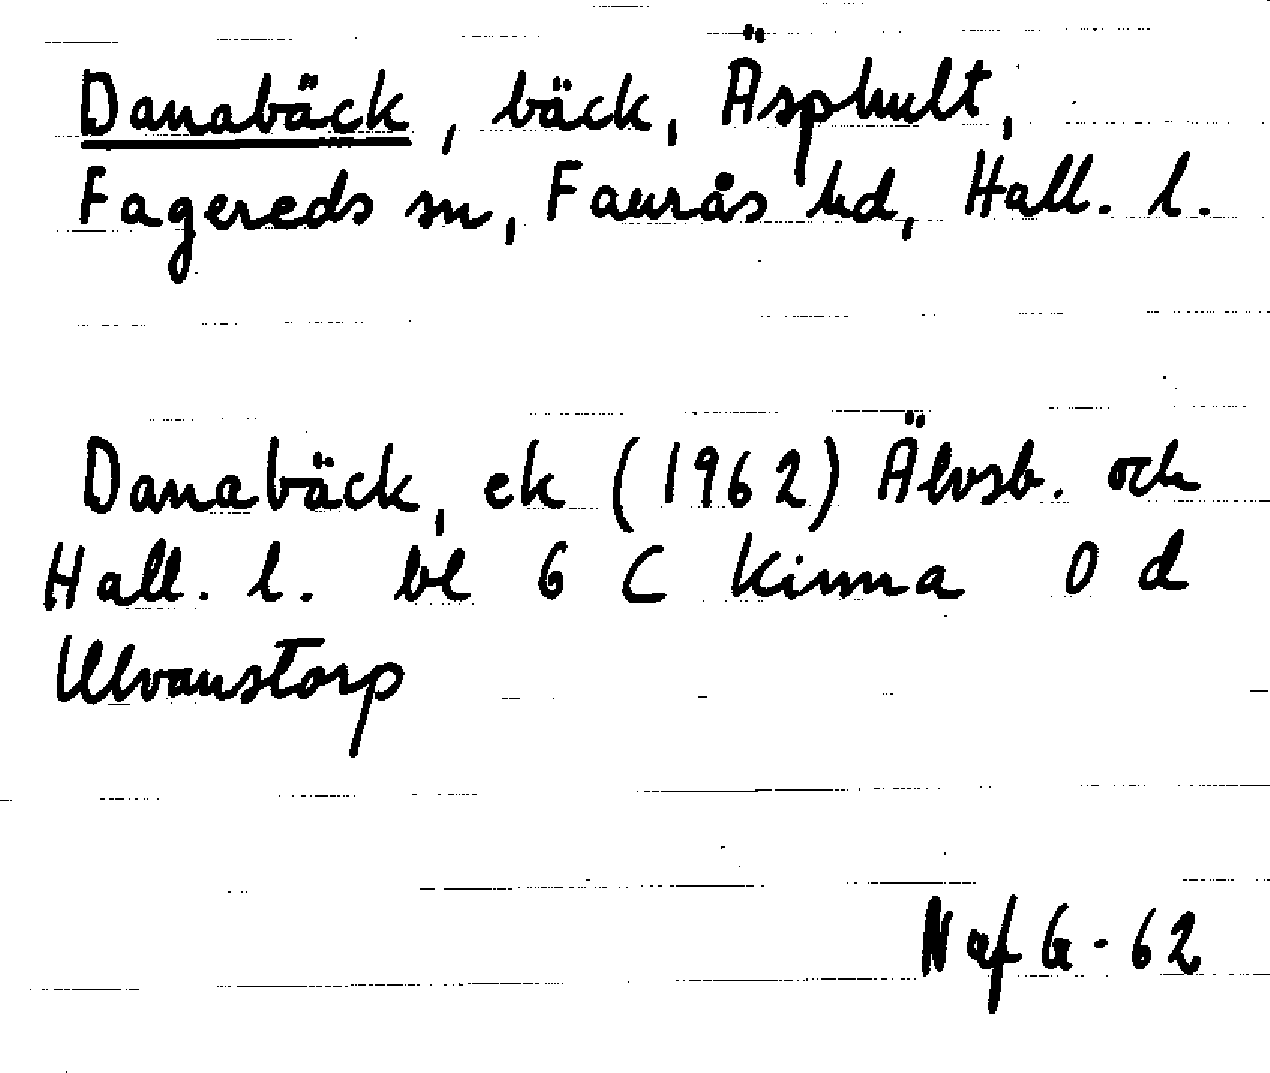 Danabäck, bäck, Äsphult,
Fagereds sn, Faurås hd, Hall. l.
Danabäck, ek (1962) Älvsb. och
Hall. l. bl 6 C Kinna 0 d
Ulvanstorp
N af G-62